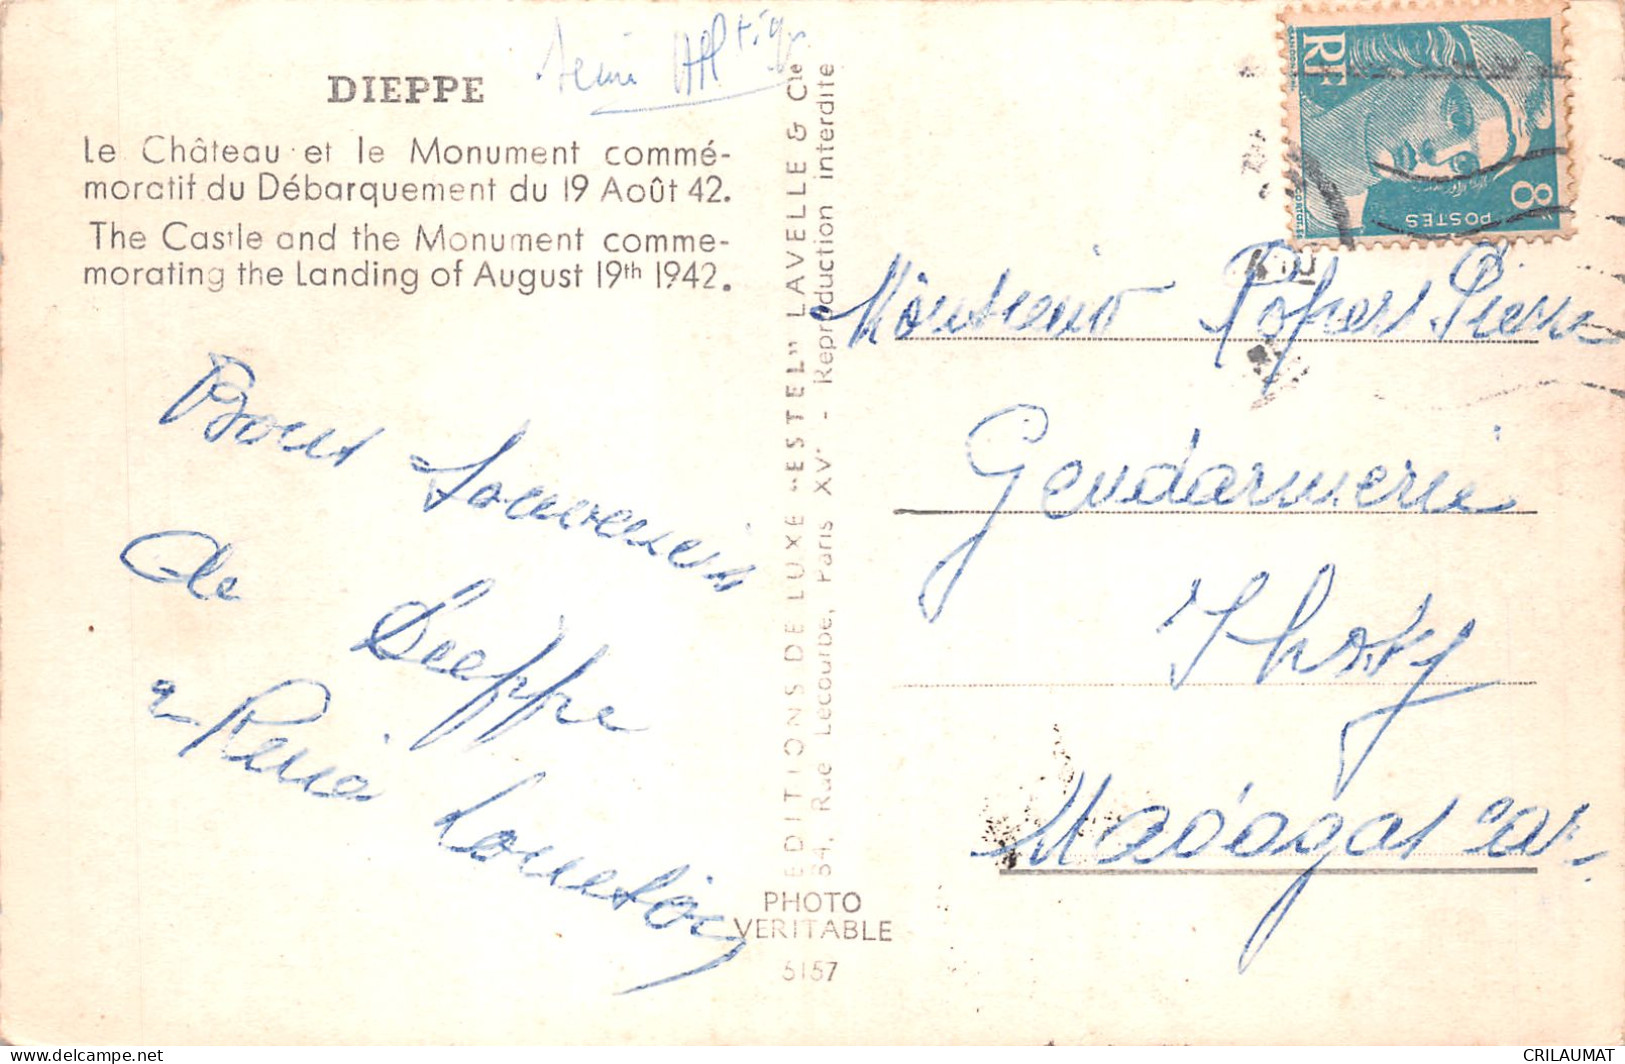 DIEPPE
Le Château et le Monument commé-
moratif du Débarquement du 19 Août 42.
The Castle and the Monument comme-
morating the Landing of August 19th 1942.
RF
POSTES
8F
Monsieur Pierre
Gendarmerie
Madagascar
Bons Souvenirs
de Dieppe
EDITIONS DE LUXE "ESTEL" LAVELLE & Cie
54, Rue Lecourbe, Paris XVe - Reproduction interdite
PHOTO
VERITABLE
5157
CRILAUMAT